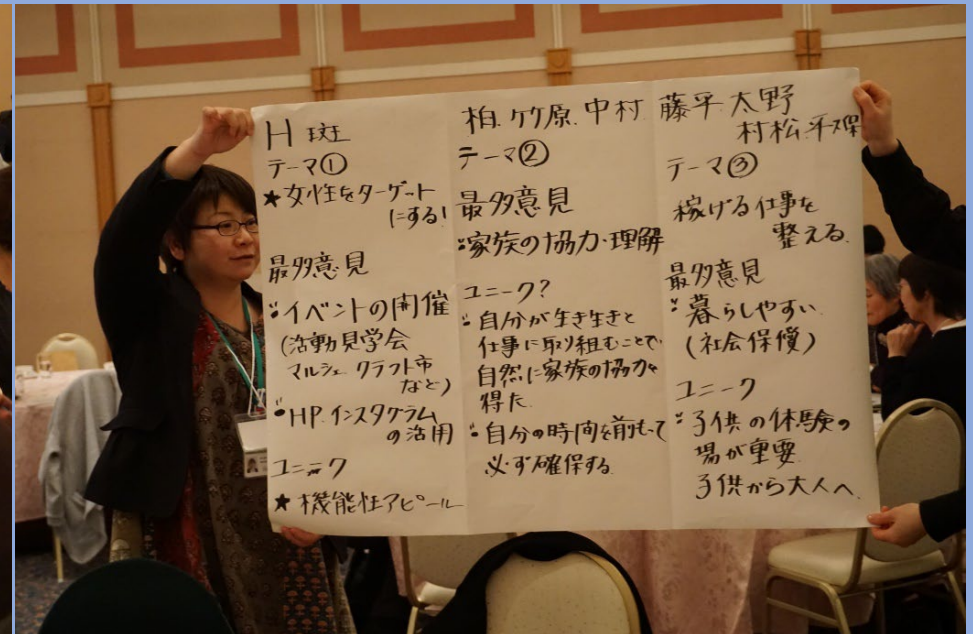 H 班
テーマ①
★女性をターゲット
にする!
最多意見
・イベントの開催
(活動見学会
マルシェ クラフト市
など)
・HP.インスタグラム
の活用
ユニーク
★機能性アピール
柏.竹原.中村
テーマ②
最多意見
・家族の協力・理解
ユニーク?
・自分が生き生きと
仕事に取り組むことで
自然に家族の協力を
得た.
・自分の時間を前もって
必ず確保する.
藤平.太野
村松.平塚
テーマ③
稼げる仕事を
整える.
最多意見
・暮らしやすい
(社会保償)
ユニーク
・子供の体験の
場が重要.
子供から大人へ.